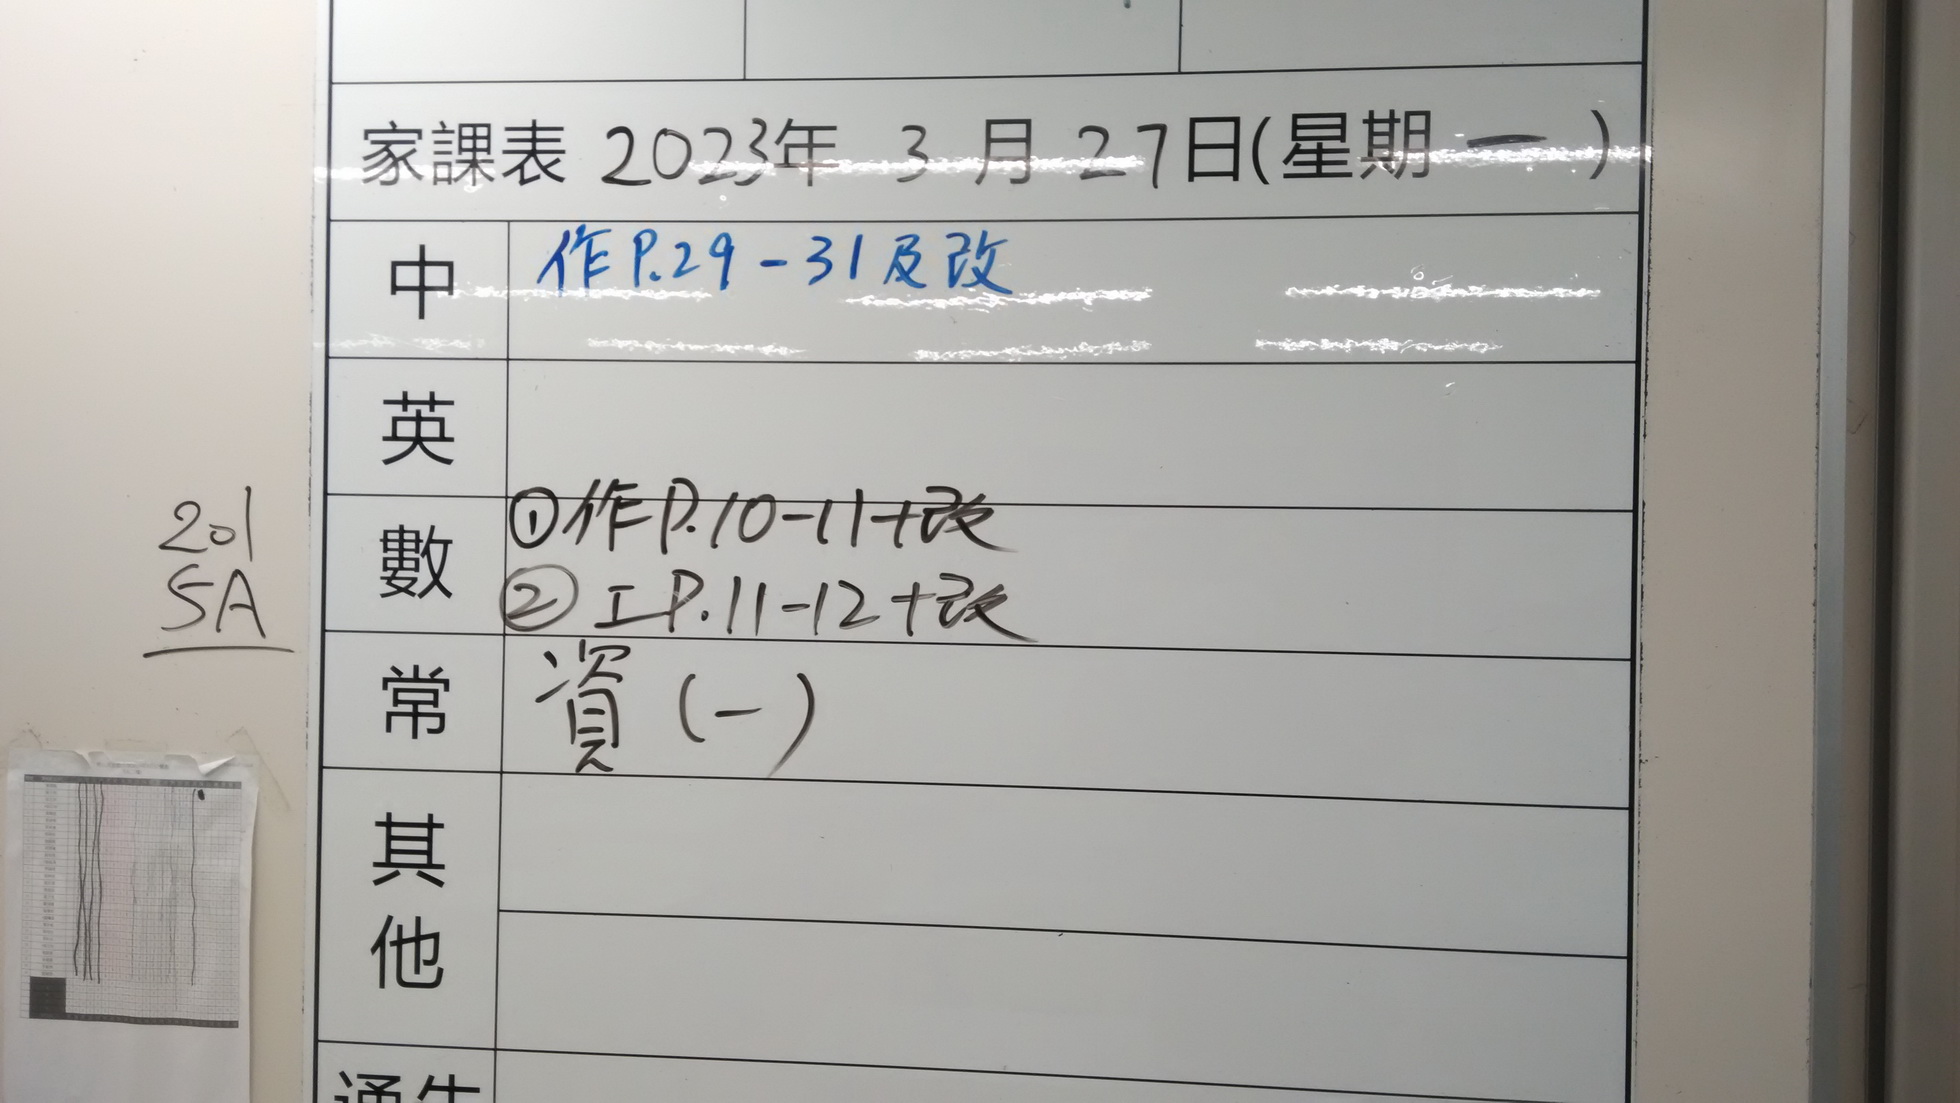 家課表 2023年 3 月 27日(星期一)
中 作P.29-31及改
英
數 ①作P.10-11+改
②工P.11-12+改
201
5A
常 資(一)
其他
通告